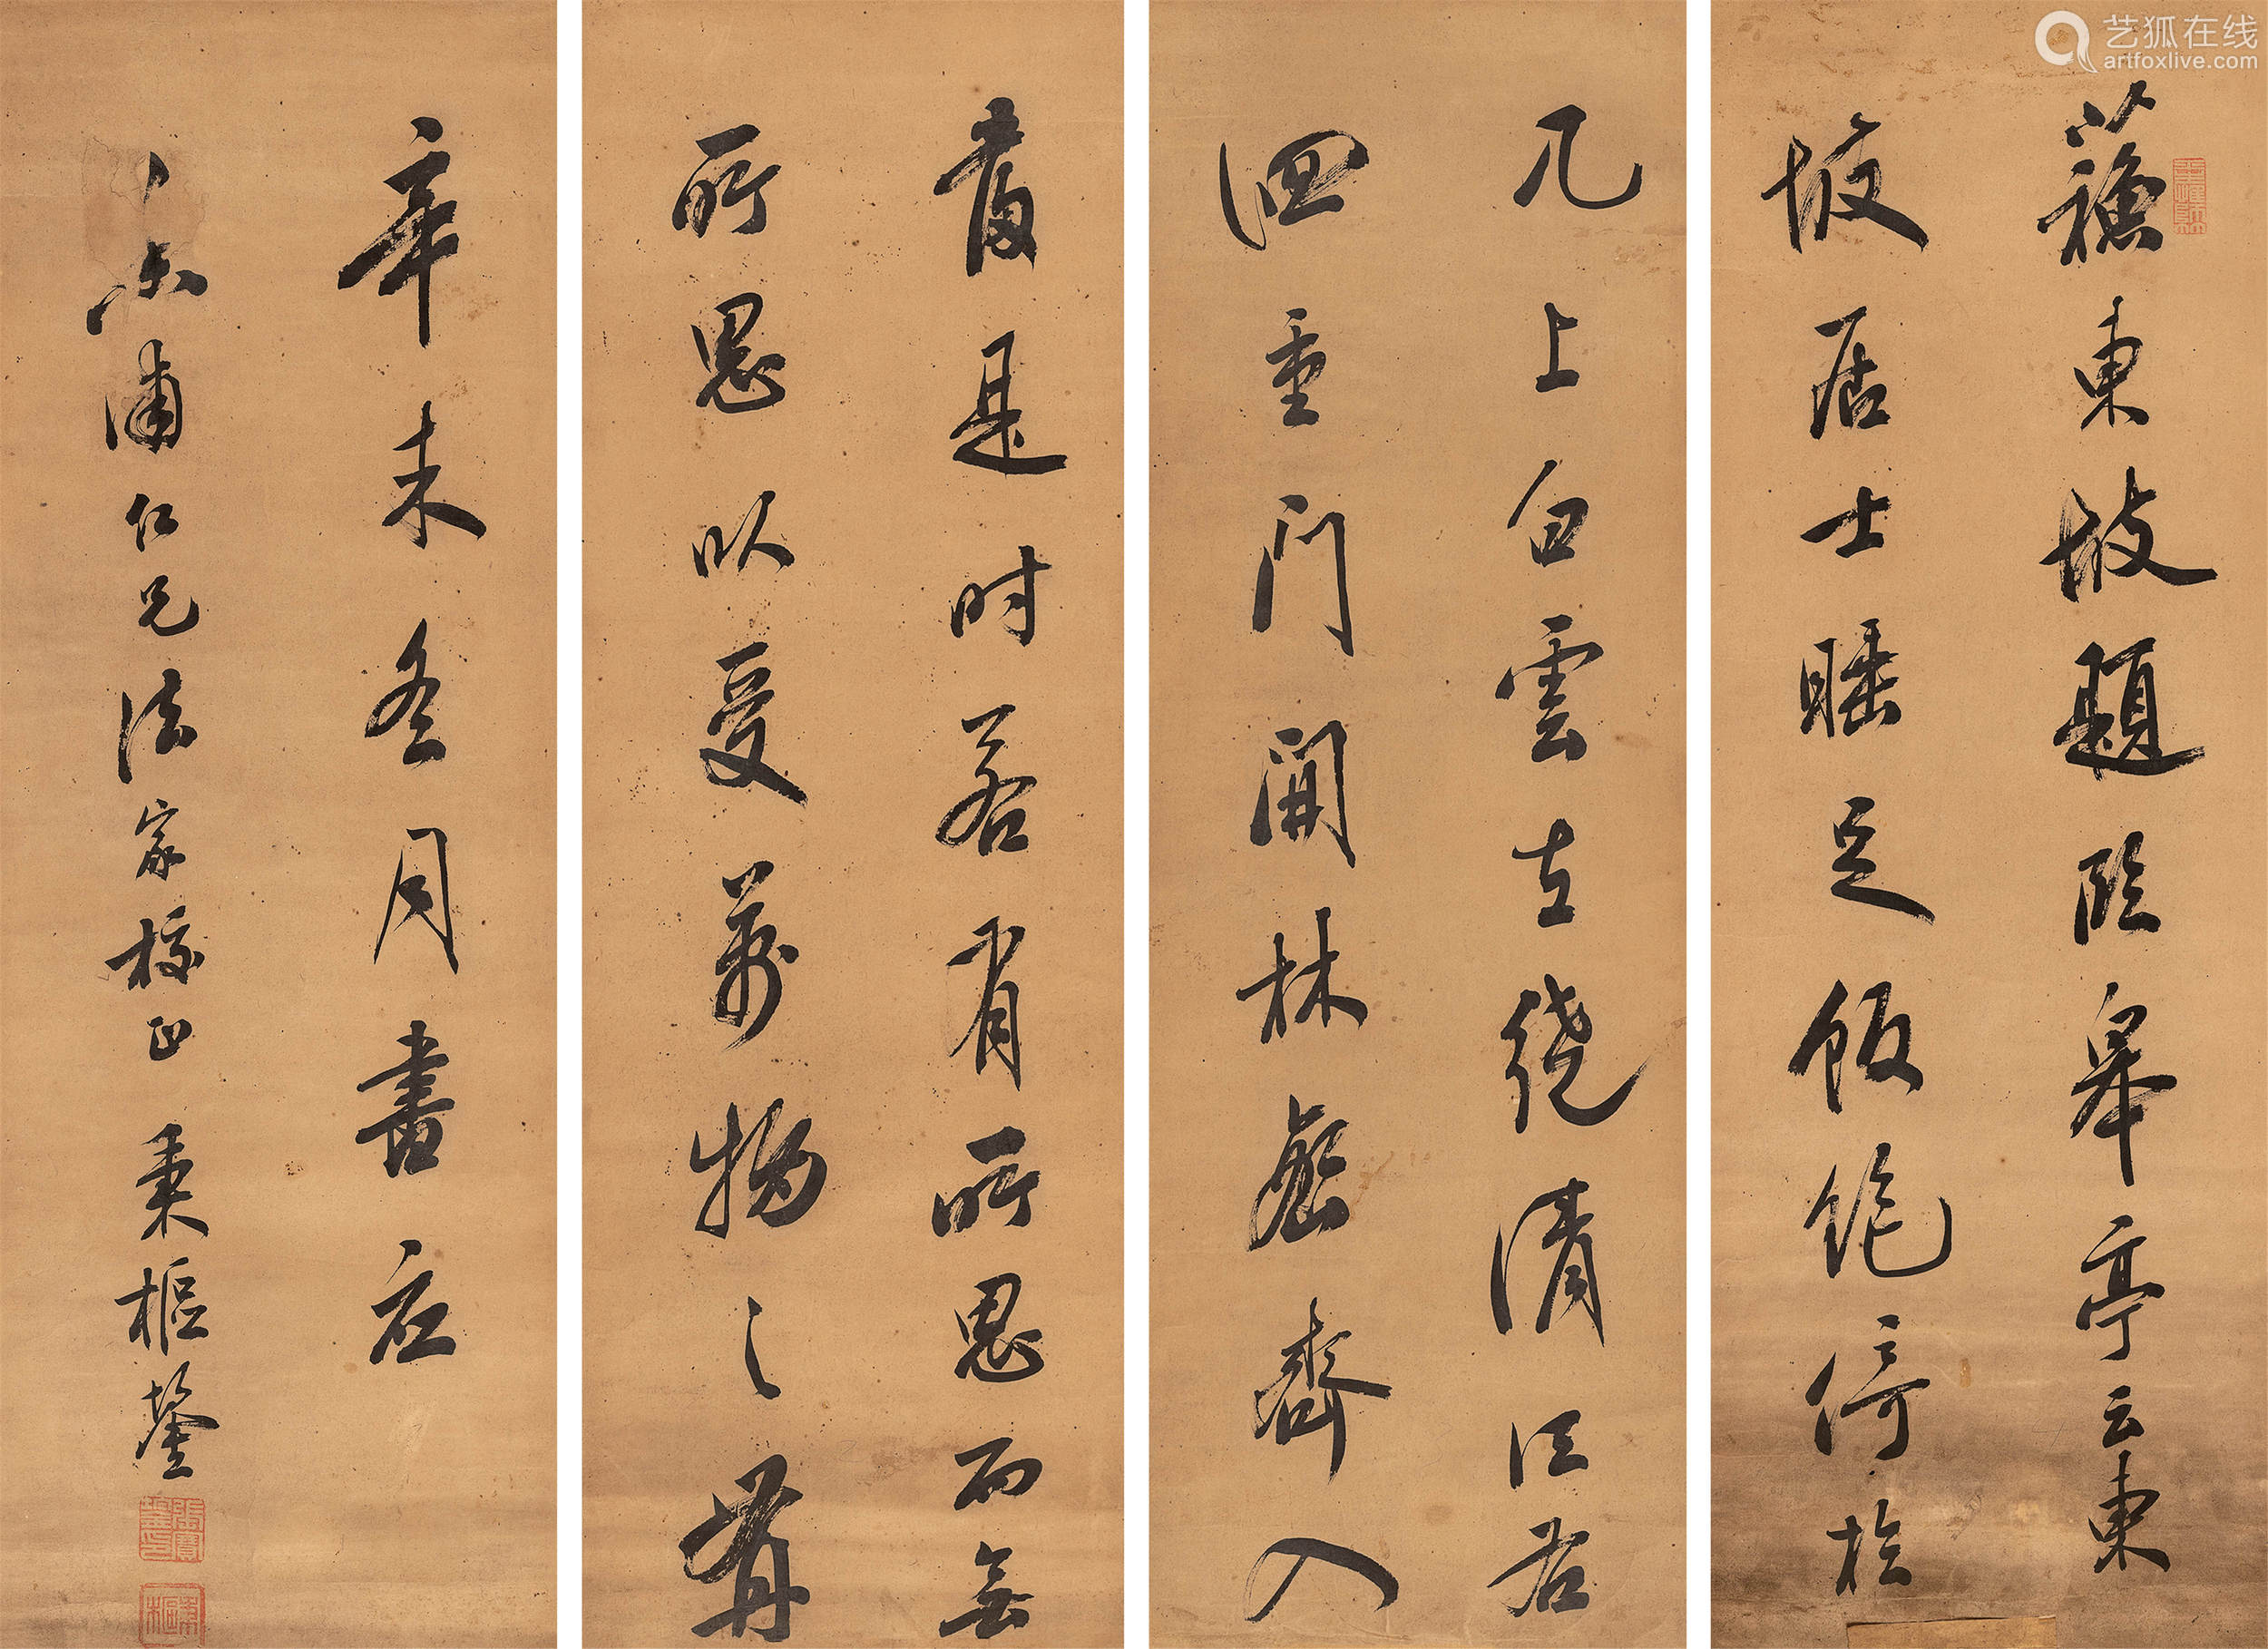 蘇東坡題臨皋亭云東
坡居士睡足飯飽倚於
几上白雲左繞清江右
洄重門洞開林巒岔入
當是时若有所思而無
所思以受萬物之備
辛未冬月書應
浦仁兄法家校正 秉樞鋆
艺狐在线
artfoxlive.com